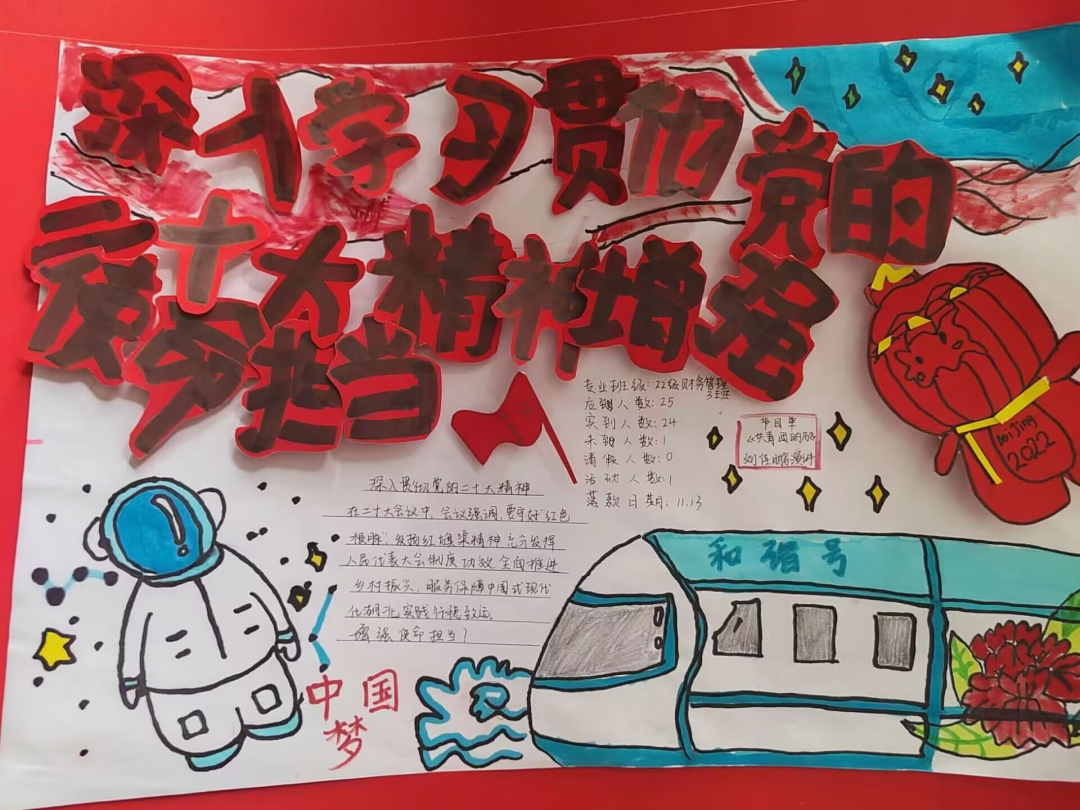 深入学习贯彻党的
二十大精神增强
使命担当
专业班级：22级财务管理
3班
应到人数：25
实到人数：24
未到人数：1
请假人数：0
活动人数：1
落款日期：11.13
节目单
《共青团的
深入贯彻党的二十大精神
在二十大会议中，会议强调，要守好“红色
根脉”发扬红旗渠精神充分发挥
人民代表大会制度功效全面推进
乡村振兴，服务保障中国式现代
化湖北实践行稳致远，
增强使命担当！
BeiJing
2022
和谐号
中国
梦